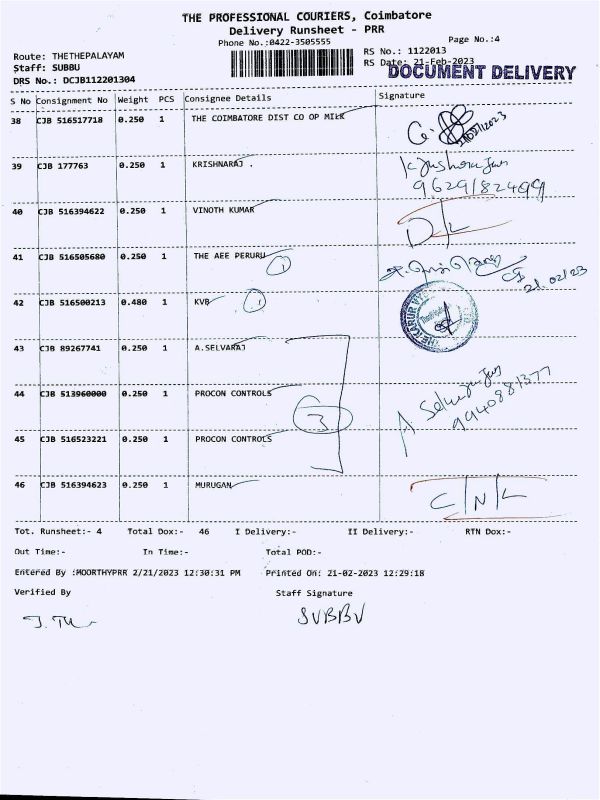 THE PROFESSIONAL COURIERS, Coimbatore
Delivery Runsheet - PRR
Phone No.:0422-3505555
Page No.:4
Route: THETHEPALAYAM
RS No.: 1122013
Staff: SUBBU
RS Date: 21-Feb-2023
DOCUMENT DELIVERY
DRS No.: DCJB112201304
S No Consignment No Weight PCS Consignee Details Signature
38 CJB 516517718 0.250 1 THE COIMBATORE DIST CO OP MILK
39 CJB 177763 0.250 1 KRISHNARAJ .
9629182499
40 CJB 516394622 0.250 1 VINOTH KUMAR D/L
41 CJB 516505680 0.250 1 THE AEE PERURU 1
21.02/23
42 CJB 516500213 0.480 1 KVB 1
43 CJB 89267741 0.250 1 A.SELVARAJ
44 CJB 513960000 0.250 1 PROCON CONTROLS 3
A
9940881377
45 CJB 516523221 0.250 1 PROCON CONTROLS
46 CJB 516394623 0.250 1 MURUGAN C/N/L
Tot. Runsheet:- 4 Total Dox:- 46 I Delivery:- II Delivery:- RTN Dox:-
Out Time:- In Time:- Total POD:-
Entered By :MOORTHYPRR 2/21/2023 12:30:31 PM Printed On: 21-02-2023 12:29:18
Verified By Staff Signature
SUBBU